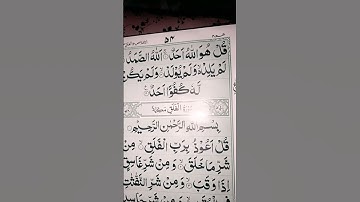 ٥٤
قُلْ هُوَ اللّٰهُ اَحَدٌ ۚ اَللّٰهُ الصَّمَدُ
لَمْ يَلِدْ ۙ وَلَمْ يُوْلَدْ ۙ وَلَمْ يَكُنْ
لَّهٗ كُفُوًا اَحَدٌ
سُوْرَةُ الْفَلَقِ مَكِّيَّةٌ
بِسْمِ اللّٰهِ الرَّحْمٰنِ الرَّحِيْمِ
قُلْ اَعُوْذُ بِرَبِّ الْفَلَقِ ۙ مِنْ
شَرِّ مَا خَلَقَ ۙ وَ مِنْ شَرِّ غَاسِقٍ
اِذَا وَقَبَ ۙ وَ مِنْ شَرِّ النَّفّٰثٰتِ
شَرِّ حَاسِدٍ